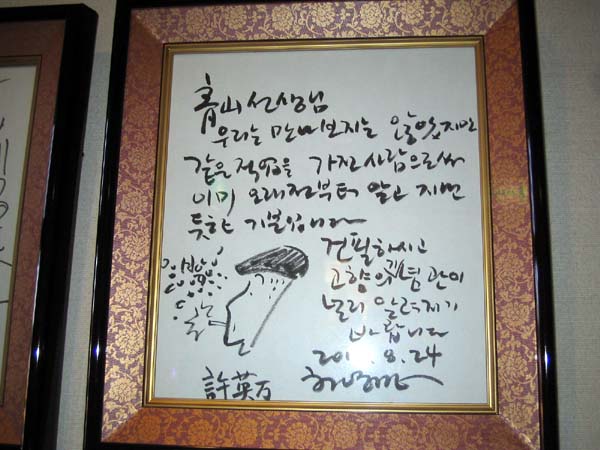 靑山 선생님
우리는 만나보지는 않았지만
같은 직업을 가진 사람으로써
이미 오래전부터 알고 지낸
듯한 기분입니다
건필하시고
고향의 기념관이
널리 알려지기
바랍니다
8.24
許英万